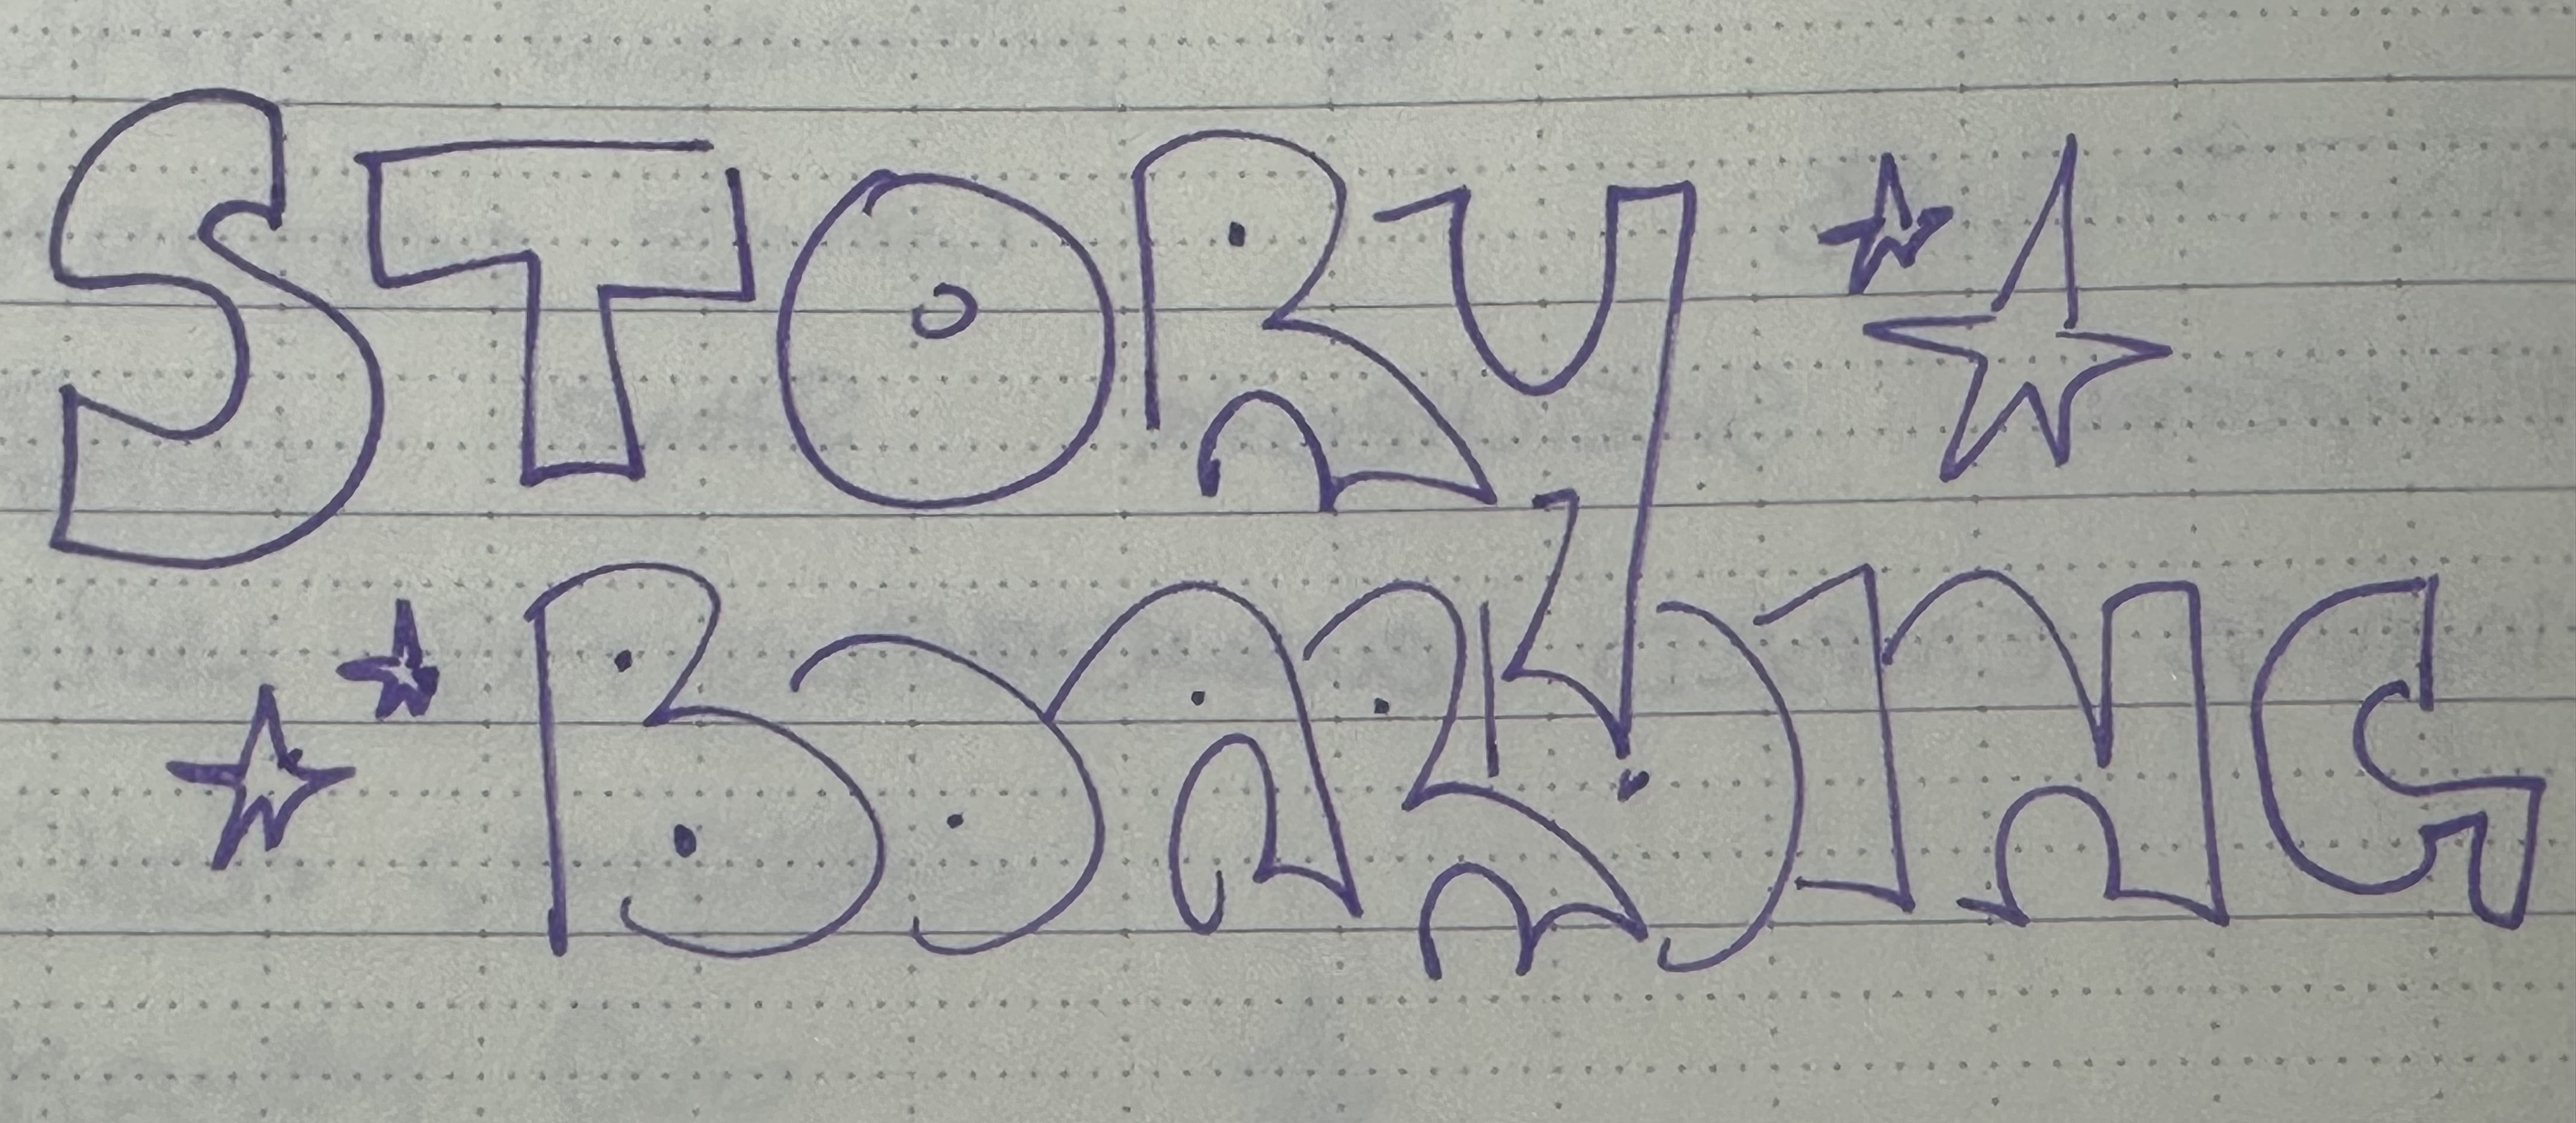 STORY
BOARDING